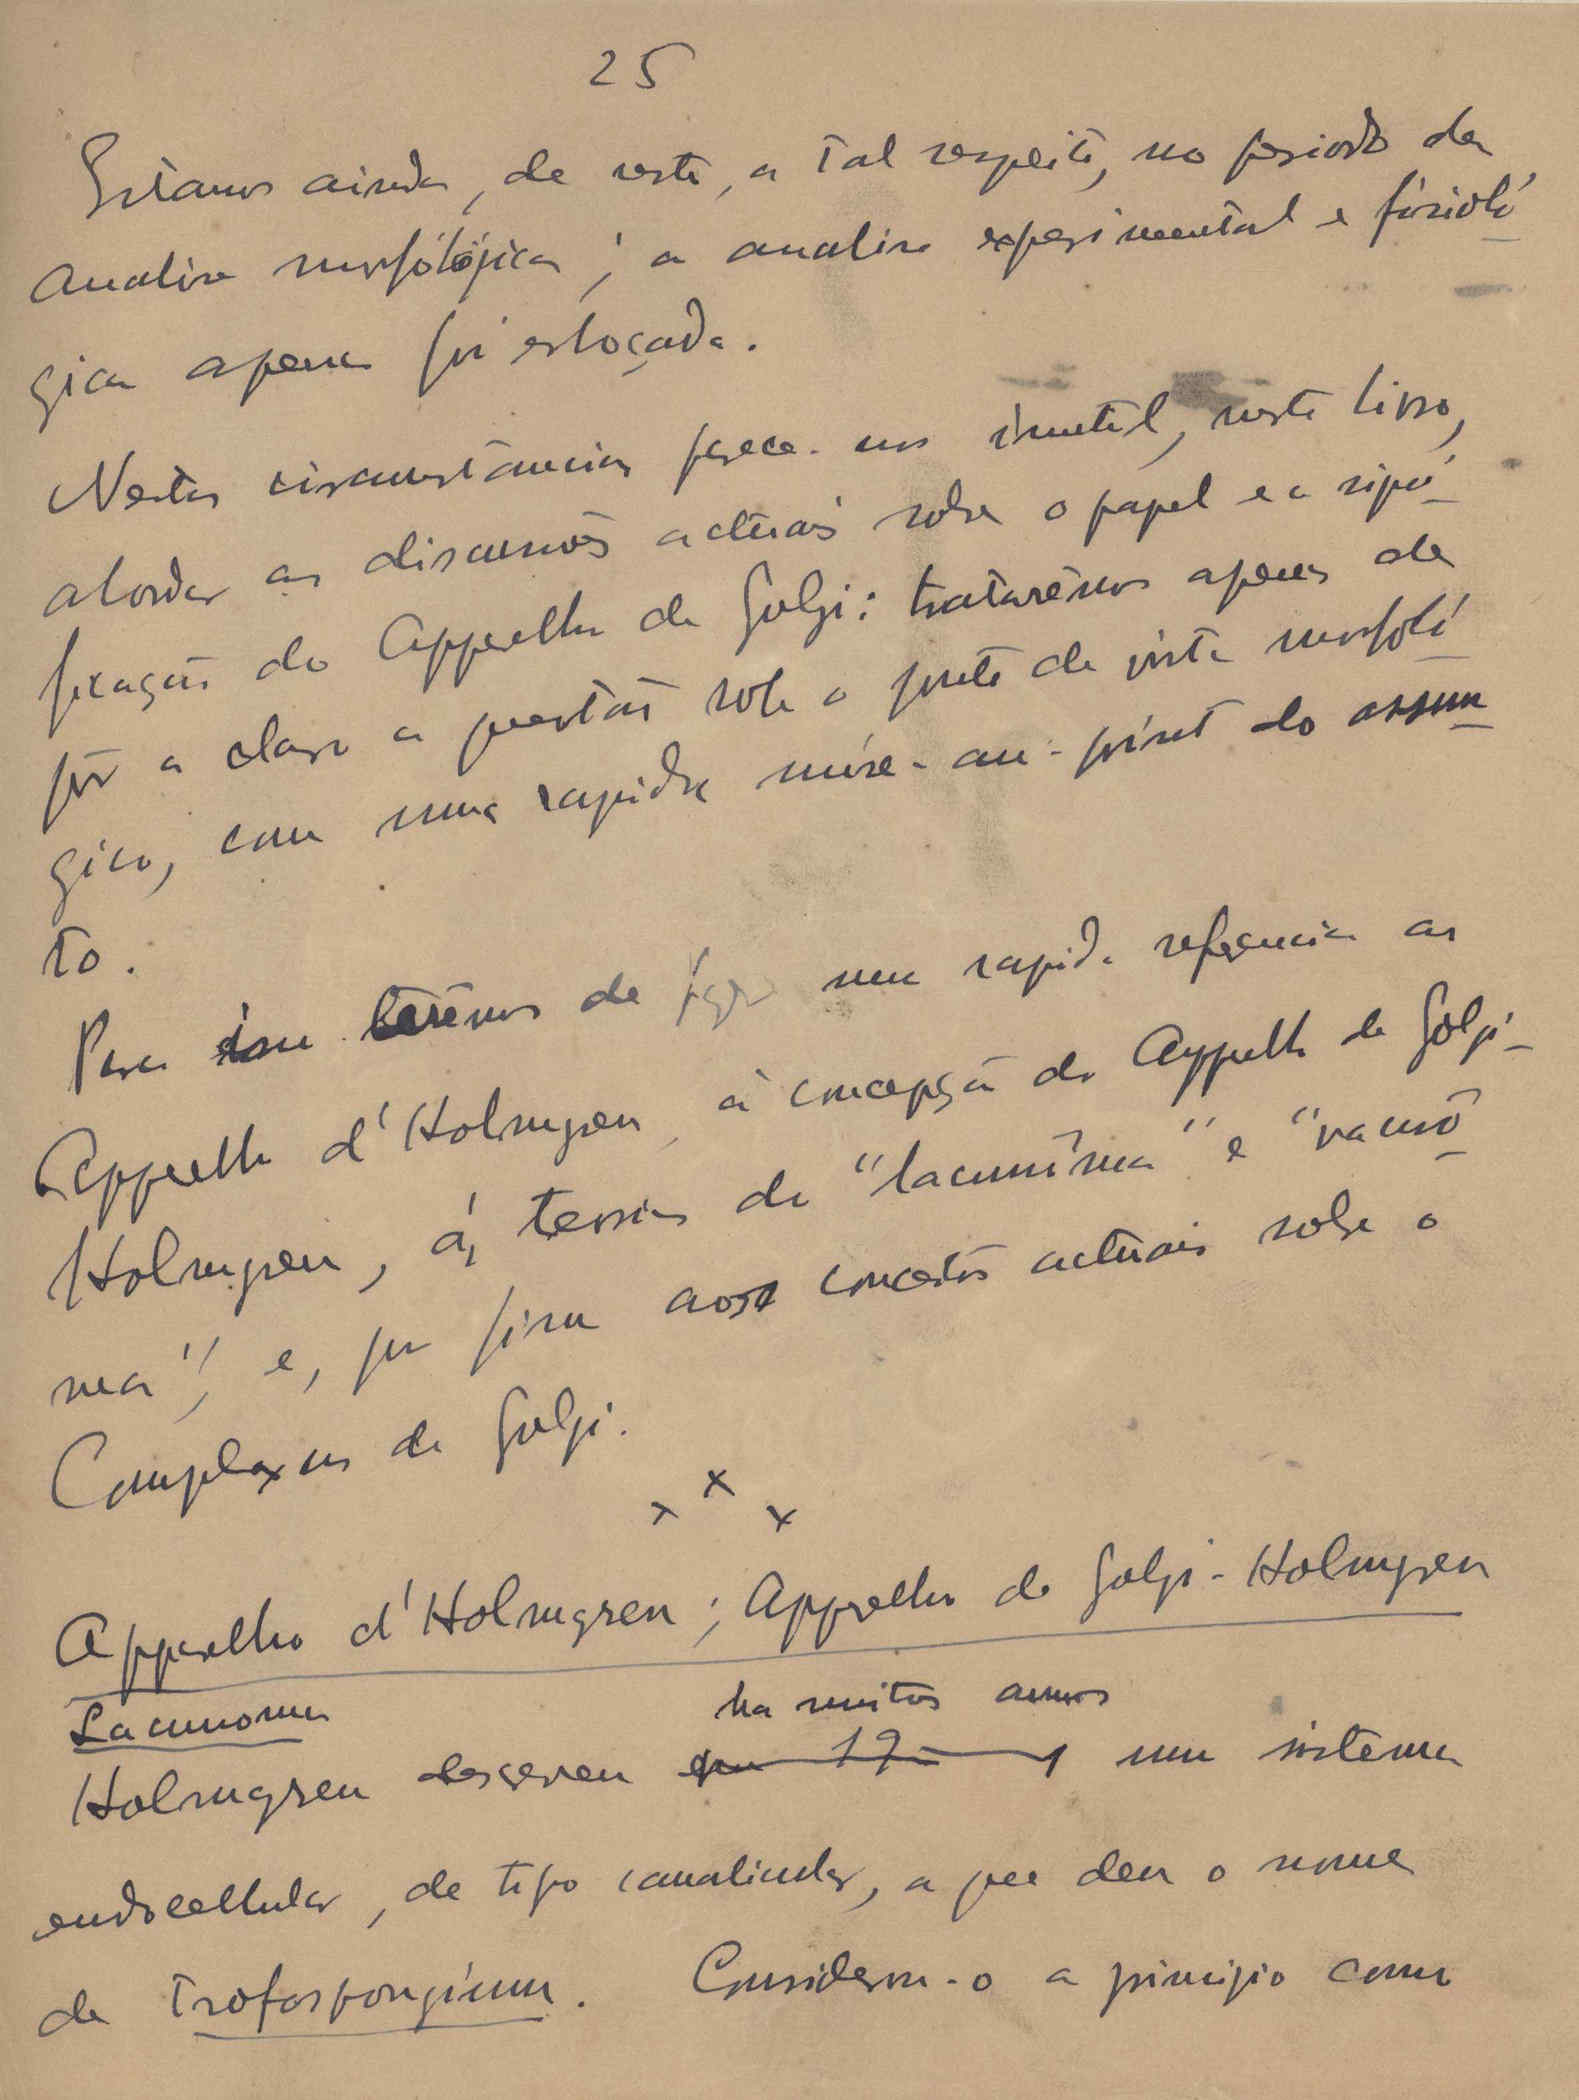 25
Estamos ainda, de resto, a tal respeito, no periodo da
analise morfológica; a analise experimental e fisioló-
gica apenas foi esboçada.
Nestas circumstancias parece-nos inutil, neste livro,
abordar as discussões actuais sobre o papel e a signi-
ficação do Apparelho de Golgi: tratarêmos apenas de
pôr a claro a questão sob o ponto de vista morfoló-
gico, com uma rapida mise-au-point do assum-
to.
Para isso terêmos de fazer uma rapida referencia ao
Apparelho d'Holmgren, á concepção do Apparelho de Golgi-
Holmgren, ás teorias do "lacunôma" e "vacuô-
ma", e, por fim aos conceitos actuais sobre o
Complexus de Golgi.
x x x
Apparelho d'Holmgren; Apparelho de Golgi-Holmgren
Lacunoma
ha muitos annos
Holmgren descreveu em 19 um sistema
endocellular, de tipo canalicular, a que deu o nome
de Trofospongium. Considerou-o a principio como